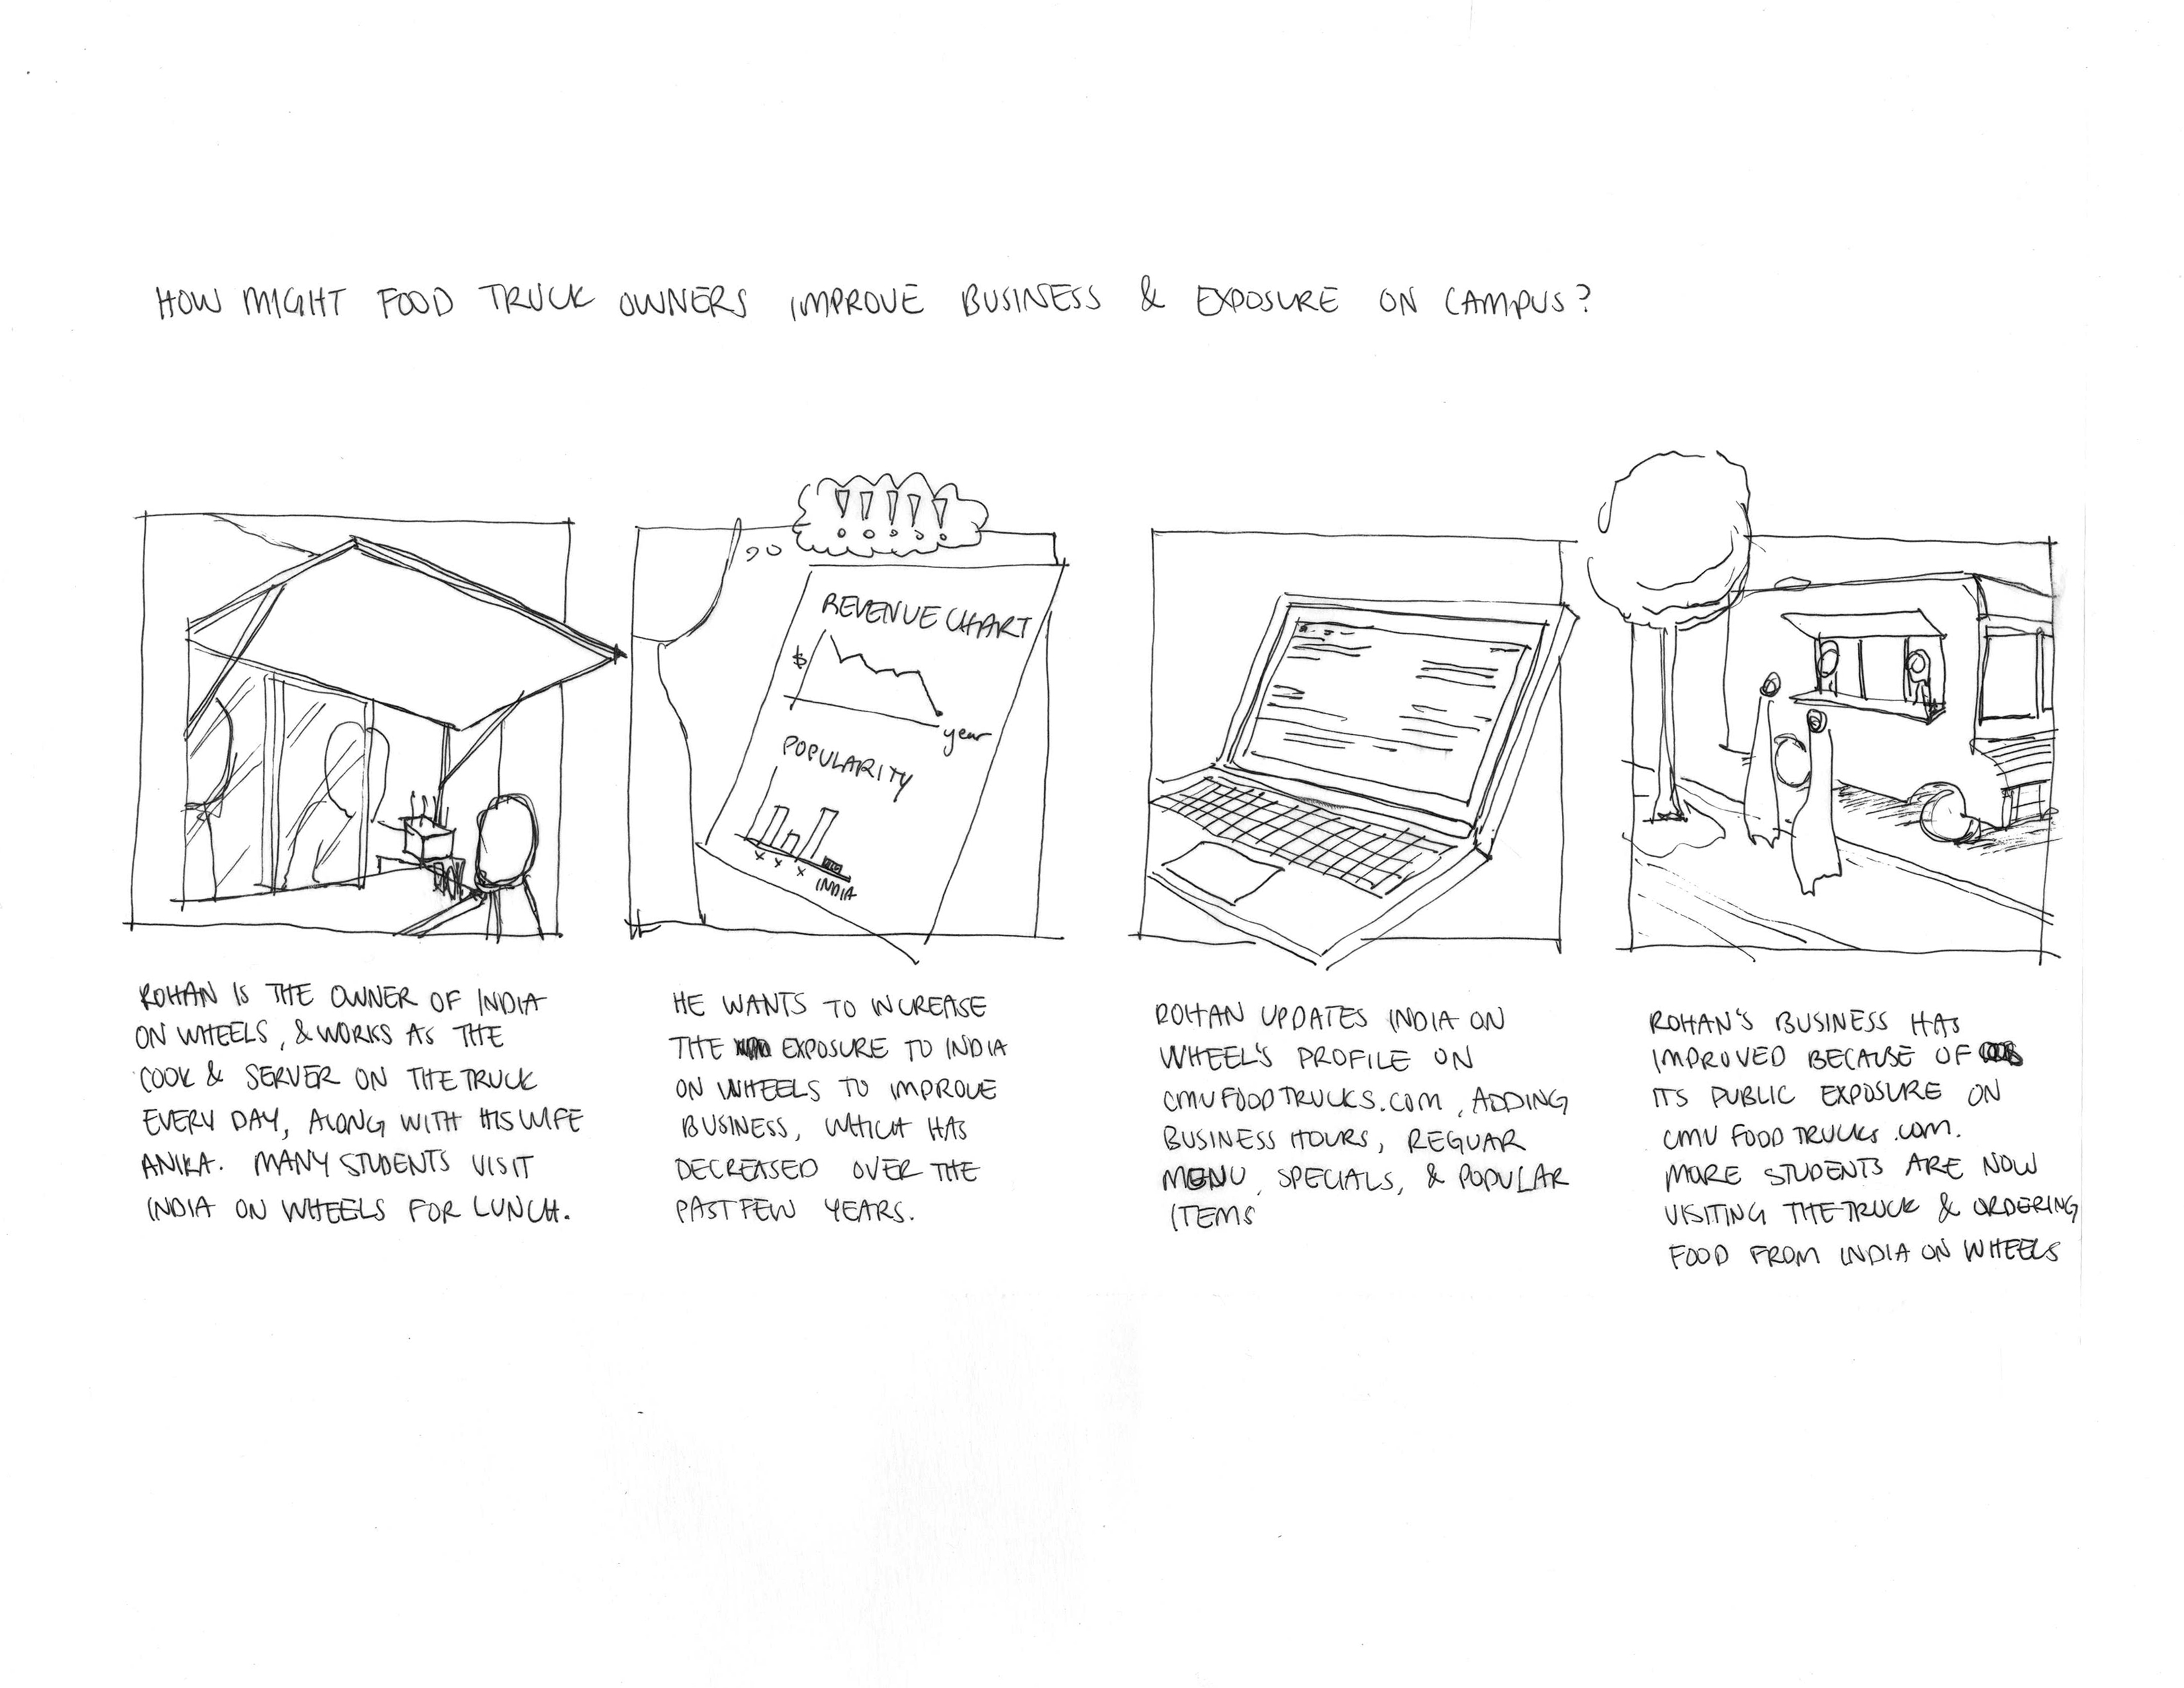 HOW MIGHT FOOD TRUCK OWNERS IMPROVE BUSINESS & EXPOSURE ON CAMPUS?
!!!!!
REVENUE CHART
$
year
POPULARITY
x x x INDIA
ROHAN IS THE OWNER OF INDIA
ON WHEELS, & WORKS AS THE
COOK & SERVER ON THE TRUCK
EVERY DAY, ALONG WITH HIS WIFE
ANIKA. MANY STUDENTS VISIT
INDIA ON WHEELS FOR LUNCH.
HE WANTS TO INCREASE
THE EXPOSURE TO INDIA
ON WHEELS TO IMPROVE
BUSINESS, WHICH HAS
DECREASED OVER THE
PAST FEW YEARS.
ROHAN UPDATES INDIA ON
WHEEL'S PROFILE ON
CMUFOODTRUCKS.COM, ADDING
BUSINESS HOURS, REGUAR
MENU, SPECIALS, & POPULAR
ITEMS
ROHAN'S BUSINESS HAS
IMPROVED BECAUSE OF
ITS PUBLIC EXPOSURE ON
CMU FOODTRUCKS.COM.
MORE STUDENTS ARE NOW
VISITING THE TRUCK & ORDERING
FOOD FROM INDIA ON WHEELS